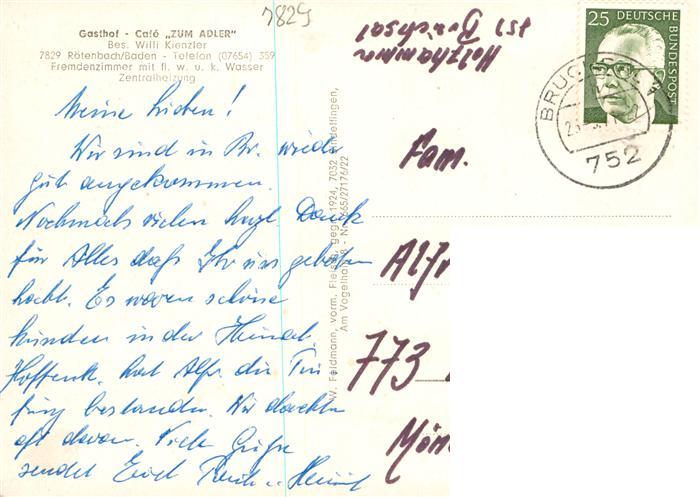 7829
Gasthof - Café „ZUM ADLER"
Bes. Willi Kienzler
7829 Rötenbach/Baden - Telefon (07654) 359
Fremdenzimmer mit fl. w. u. k. Wasser
Zentralheizung
Meine Lieben!
Wir sind in Br. wieder
gut angekommen.
Nochmals vielen herzl. Dank
für Alles daß Ihr uns geboten
habt. Es waren schöne
Stunden in der Heimat.
Hoffentl. hat Alfr. die Prü
fung bestanden. Wir dachten
oft davon. Viele Grüße
sendet Erich
W. Feldmann, vorm. Fleisig, gegr. 1924, 7032 Sindelfingen,
Am Vogelha
665/27176/22
Holzhammer
Bruchsal
25 DEUTSCHE
BUNDESPOST
BRUCHSAL
752
Fam.
Alfr
773
Mön